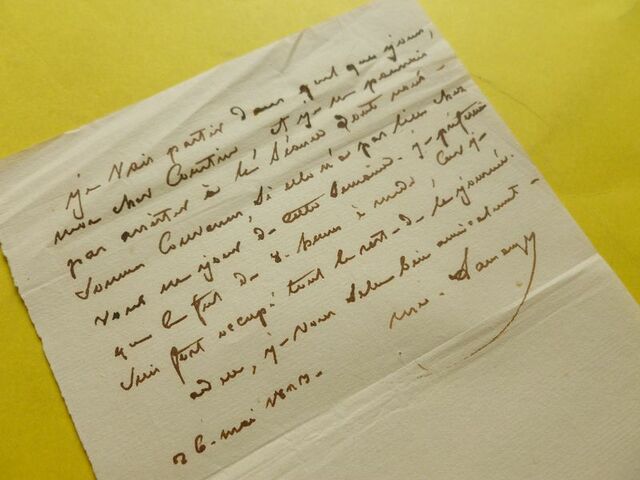 je vais partir dans quelques jours,
mon cher Courtin, et je ne pourrais
pas assister à la Séance dont nous
sommes convenus, si elle n'a pas lieu chez
vous un jour de cette semaine. je préfèrerais
que ce fut de 8. heures à midi car je
suis fort occupé tout le reste de la journée.
adieu, je vous salue bien amicalement
26. mai